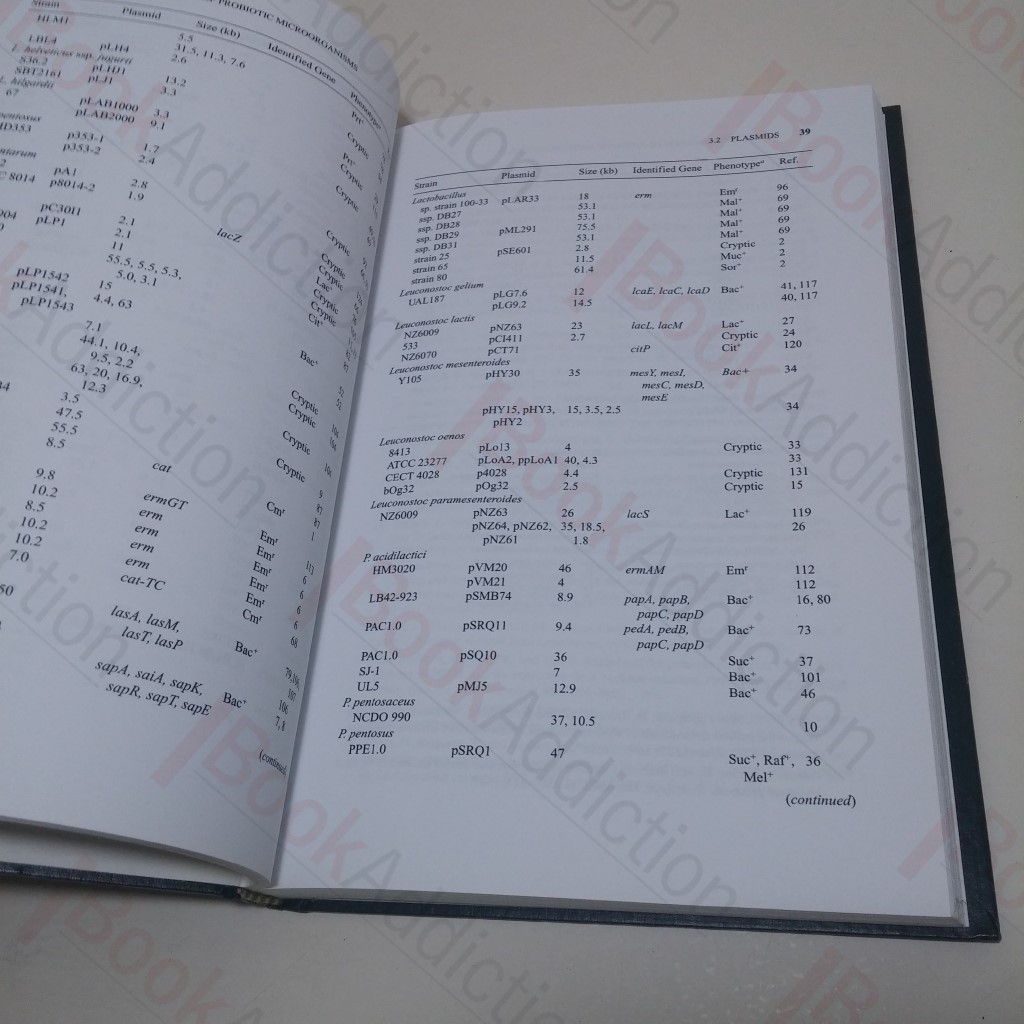 PROBIOTIC MICROORGANISMS
Strain Plasmid Size (kb) Identified Gene Phenotype
HLM1 5.5 Prt+
LBL4 pLH4 31.5, 11.3, 7.6
L. helveticus ssp. jugurti 2.6
S36.2 pLHJ1
SBT2161 pLJ1 13.2 Cryptic
L. hilgardii 3.3
67 pLAB1000 3.3
pLAB2000 9.1
MD353 p353-1 1.7
p353-2 2.4
pA1 2.8
8014 p8014-2 1.9
pC30il 2.1
pLP1 2.1 lacZ
11
55.5, 5.5, 5.3,
5.0, 3.1
pLP1542 15
pLP1541, 4.4, 63
pLP1543
7.1
44.1, 10.4,
9.5, 2.2
63, 20, 16.9,
12.3 Bac+
3.5
47.5
55.5
8.5
cat
9.8
10.2 ermGT Cmr
8.5 erm Emr
10.2 erm Emr
10.2 erm Emr
7.0 erm Emr
cat-TC Cmr
lasA, lasM, Bac+
lasT, lasP
sapA, saiA, sapK, Bac+
sapR, sapT, sapE
(continued)
3.2 PLASMIDS 39
Strain Plasmid Size (kb) Identified Gene Phenotypea Ref.
Lactobacillus
sp. strain 100-33 pLAR33 18 erm Emr 96
ssp. DB27 53.1 Mal+ 69
ssp. DB28 53.1 Mal+ 69
ssp. DB29 pML291 75.5 Mal+ 69
ssp. DB31 53.1 Mal+ 69
strain 25 pSE601 2.8 Cryptic 2
strain 65 11.5 Muc+ 2
strain 80 61.4 Sor+ 2
Leuconostoc gelium
UAL187 pLG7.6 12 lcaE, lcaC, lcaD Bac+ 41, 117
pLG9.2 14.5 40, 117
Leuconostoc lactis
NZ6009 pNZ63 23 lacL, lacM Lac+ 27
533 pCI411 2.7 Cryptic 24
NZ6070 pCT71 citP Cit+ 120
Leuconostoc mesenteroides
Y105 pHY30 35 mesY, mesI, Bac+ 34
mesC, mesD,
mesE
pHY15, pHY3, 15, 3.5, 2.5 34
pHY2
Leuconostoc oenos
8413 pLo13 4 Cryptic 33
ATCC 23277 pLoA2, ppLoA1 40, 4.3 33
CECT 4028 p4028 4.4 Cryptic 131
bOg32 pOg32 2.5 Cryptic 15
Leuconostoc paramesenteroides
NZ6009 pNZ63 26 lacS Lac+ 119
pNZ64, pNZ62, 35, 18.5, 26
pNZ61 1.8
P. acidilactici
HM3020 pVM20 46 ermAM Emr 112
pVM21 4 112
LB42-923 pSMB74 8.9 papA, papB, Bac+ 16, 80
papC, papD
PAC1.0 pSRQ11 9.4 pedA, pedB, Bac+ 73
papC, papD
PAC1.0 pSQ10 36 Suc+ 37
SJ-1 7 Bac+ 101
UL5 pMJ5 12.9 Bac+ 46
P. pentosaceus
NCDO 990 37, 10.5 10
P. pentosus
PPE1.0 pSRQ1 47 Suc+, Raf+, 36
Mel+
(continued)
BookAddiction